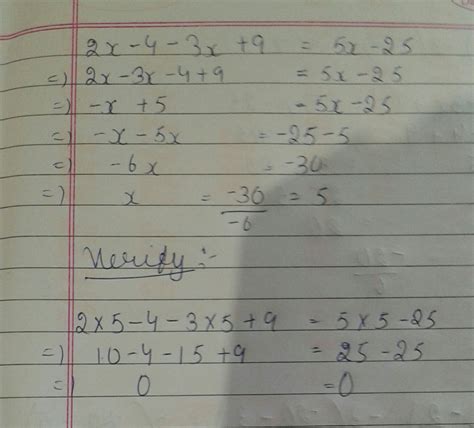 2x-4-3x+9 = 5x-25
=) 2x-3x-4+9 = 5x-25
=) -x+5 = 5x-25
=) -x-5x = -25-5
=) -6x = -30
=) x = -30/-6 = 5
Verify :-
2×5-4-3×5+9 = 5×5-25
=) 10-4-15+9 = 25-25
=) 0 = 0